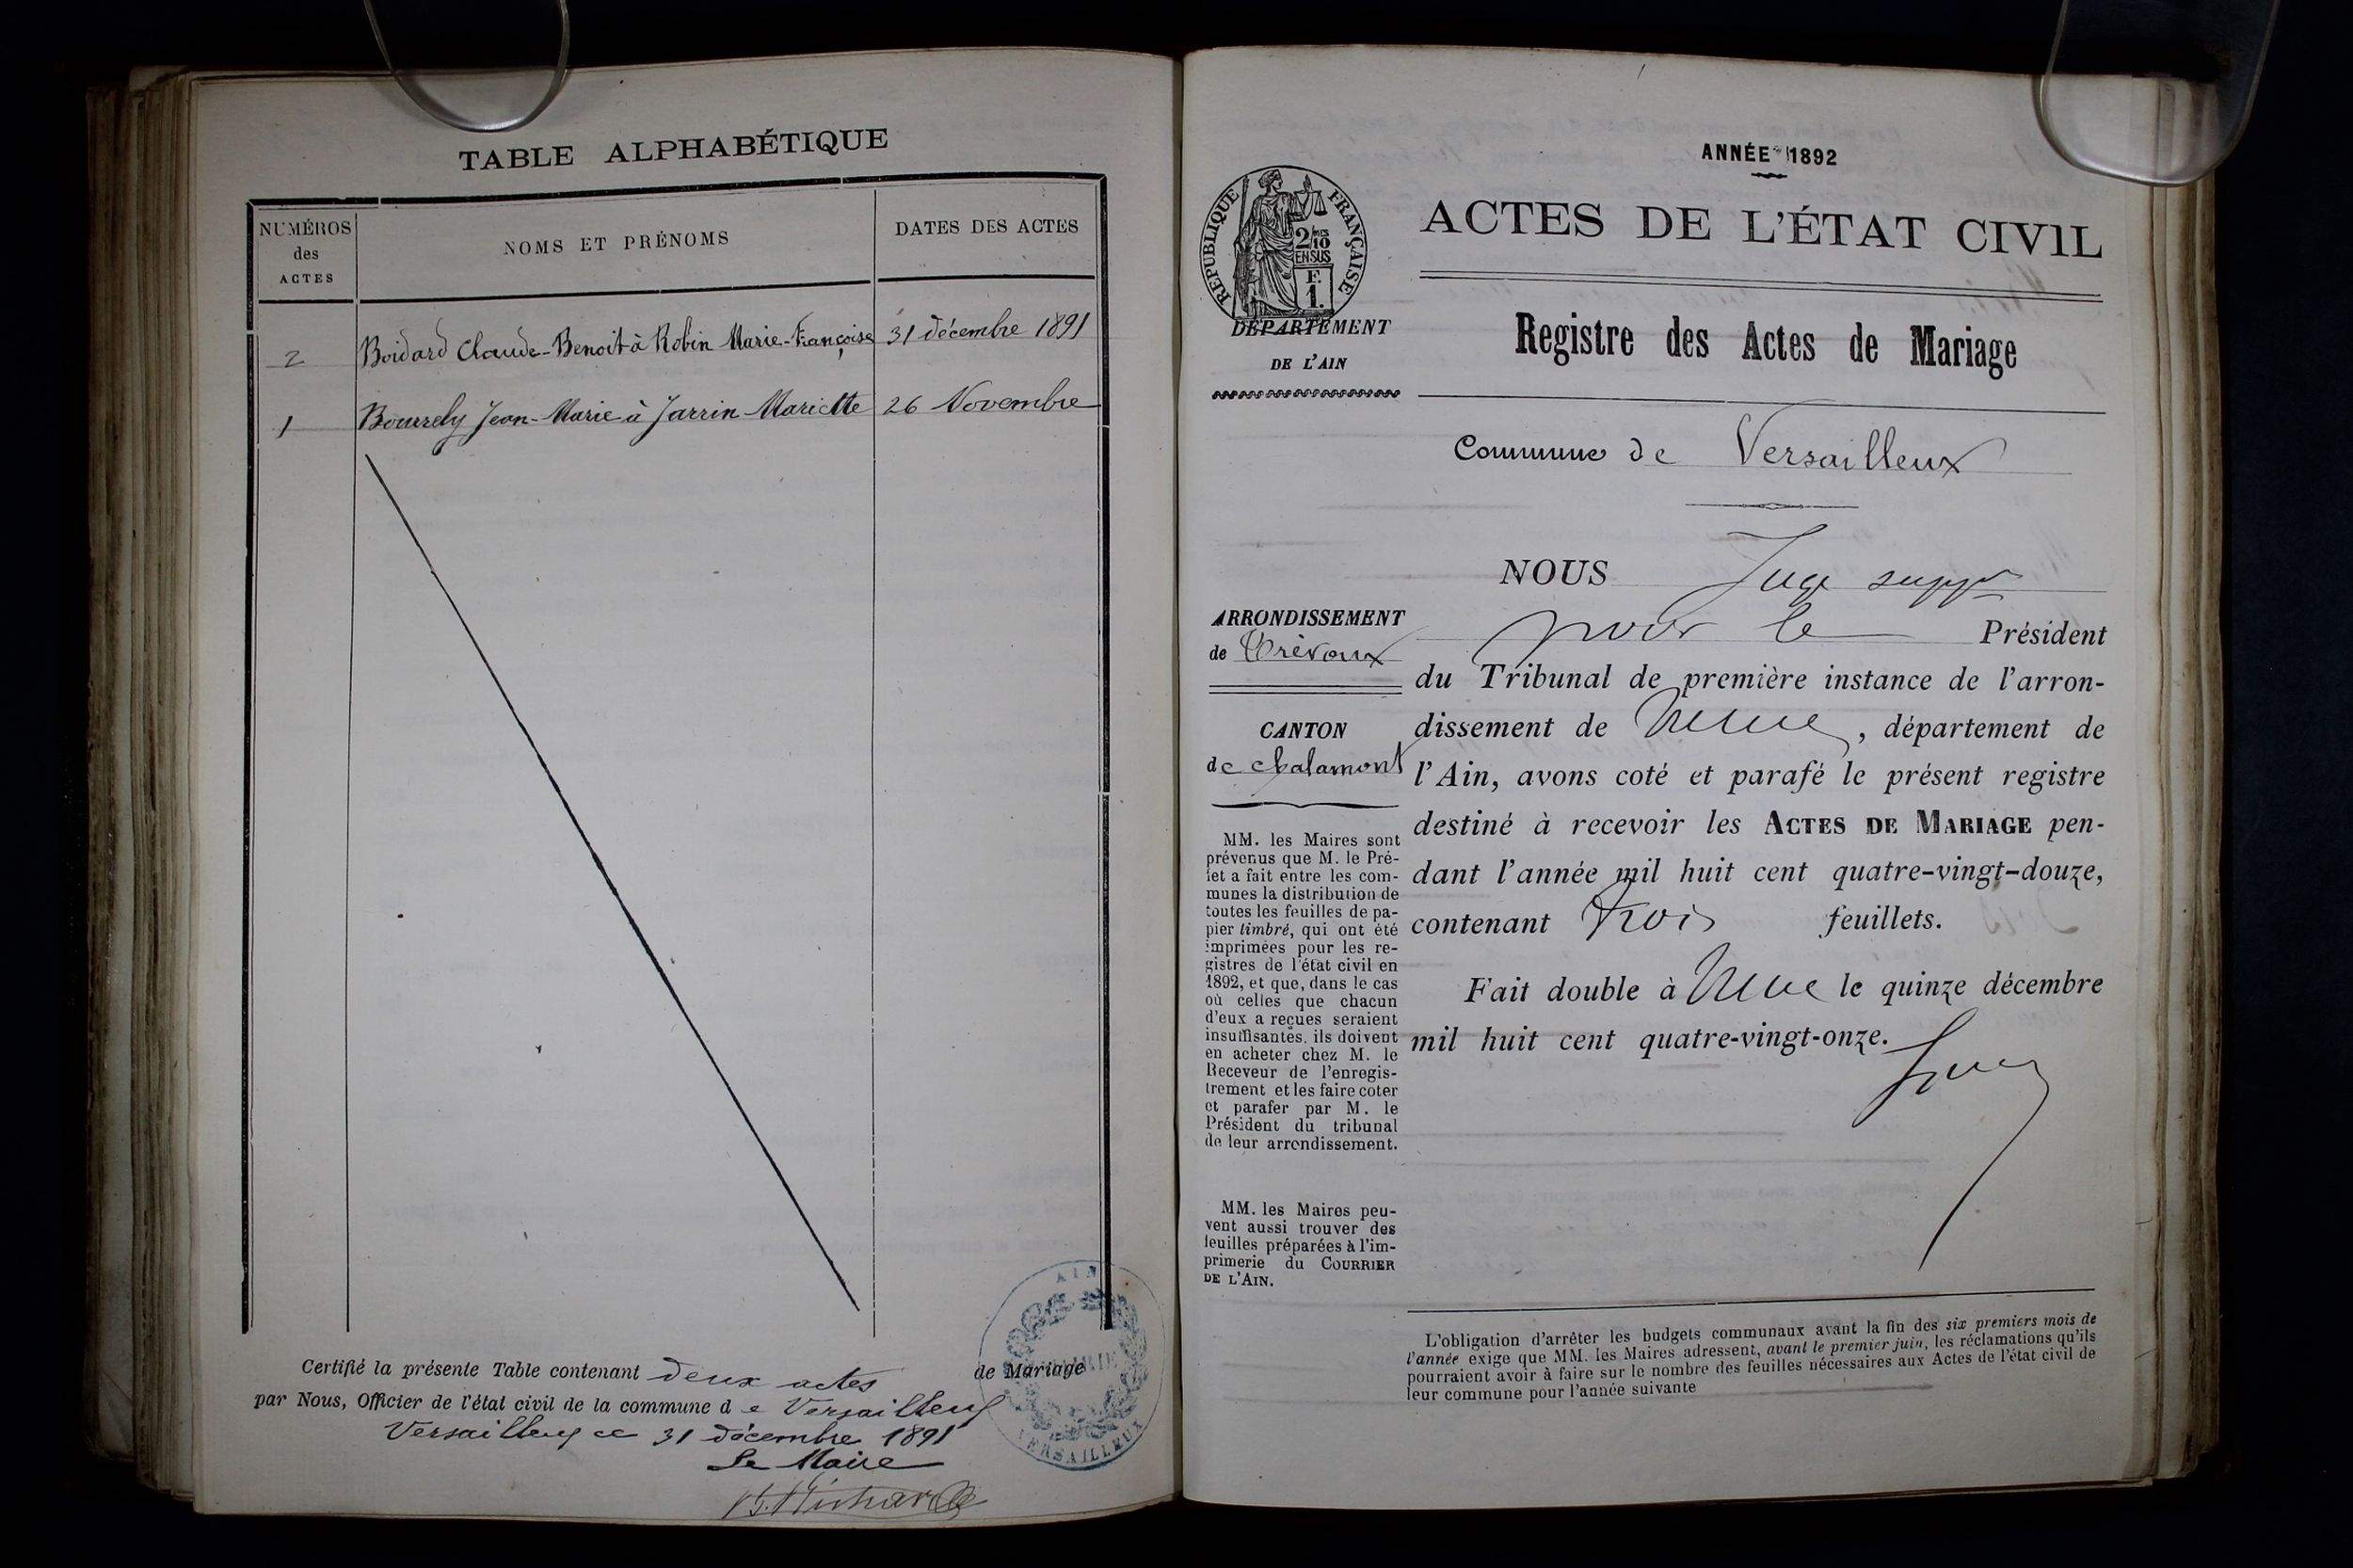 TABLE ALPHABÉTIQUE
NUMÉROS
des
ACTES
NOMS ET PRÉNOMS
DATES DES ACTES
2 Boidard Claude-Benoit à Robin Marie-Françoise 31 décembre 1891
1 Bourrely Jean-Marie à Jarrin Mariette 26 Novembre
Certifié la présente Table contenant deux actes de Mariage
par Nous, Officier de l'état civil de la commune de Versailleux
Versailleux ce 31 décembre 1891
Le Maire
AIN
MAIRIE
VERSAILLEUX
ANNÉE 1892
RÉPUBLIQUE FRANÇAISE
2/10
EN SUS
F.
1.
DÉPARTEMENT
DE L'AIN
ACTES DE L'ÉTAT CIVIL
Registre des Actes de Mariage
Commune de Versailleux
ARRONDISSEMENT
de Trévoux
CANTON
de Chalamont
MM. les Maires sont
prévenus que M. le Pré-
fet a fait entre les com-
munes la distribution de
toutes les feuilles de pa-
pier timbré, qui ont été
imprimées pour les re-
gistres de l'état civil en
1892, et que, dans le cas
où celles que chacun
d'eux a reçues seraient
insuffisantes, ils doivent
en acheter chez M. le
Receveur de l'enregis-
trement et les faire coter
et parafer par M. le
Président du tribunal
de leur arrondissement.
MM. les Maires peu-
vent aussi trouver des
feuilles préparées à l'im-
primerie du COURRIER
DE L'AIN.
NOUS Juge supp
pour le Président
du Tribunal de première instance de l'arron-
dissement de , département de
l'Ain, avons coté et parafé le présent registre
destiné à recevoir les ACTES DE MARIAGE pen-
dant l'année mil huit cent quatre-vingt-douze,
contenant trois feuillets.
Fait double à le quinze décembre
mil huit cent quatre-vingt-onze.
L'obligation d'arrêter les budgets communaux avant la fin des six premiers mois de
l'année exige que MM. les Maires adressent, avant le premier juin, les réclamations qu'ils
pourraient avoir à faire sur le nombre des feuilles nécessaires aux Actes de l'état civil de
leur commune pour l'année suivante